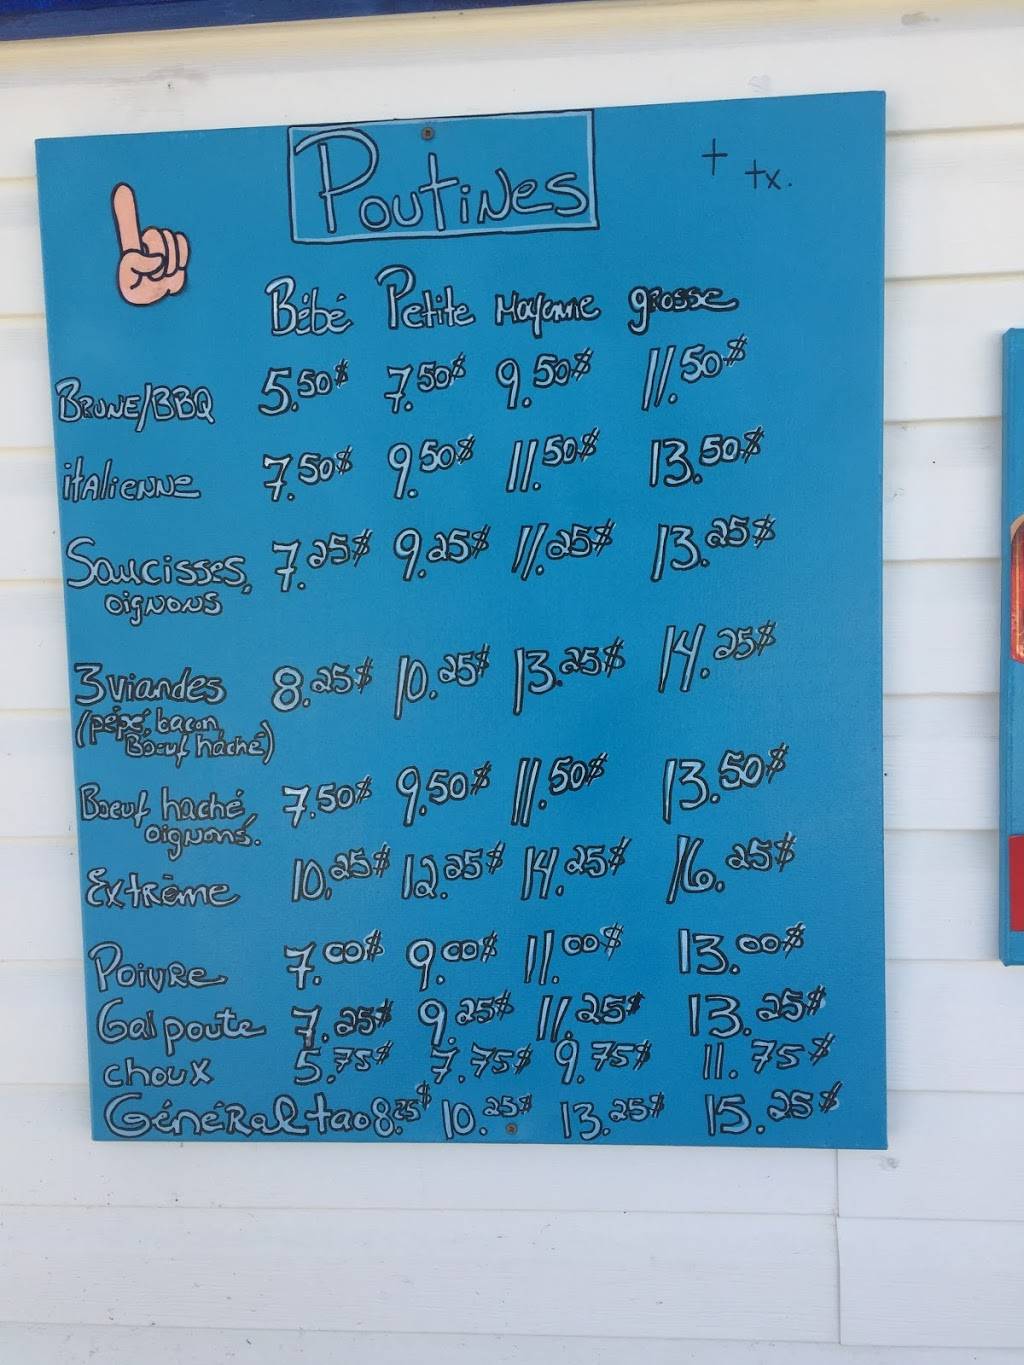 Poutines
+ tx.
Bébé Petite Moyenne grosse
Brune/BBQ 5.50$ 7.50$ 9.50$ 11.50$
italienne 7.50$ 9.50$ 11.50$ 13.50$
Saucisses, 7.25$ 9.25$ 11.25$ 13.25$
oignons
3 viandes 8.25$ 10.25$ 13.25$ 14.25$
(pépé, bacon,
Boeuf haché)
Boeuf haché, 7.50$ 9.50$ 11.50$ 13.50$
oignons.
Extrème 10.25$ 12.25$ 14.25$ 16.25$
Poivre 7.00$ 9.00$ 11.00$ 13.00$
Galpoute 7.25$ 9.25$ 11.25$ 13.25$
choux 5.75$ 7.75$ 9.75$ 11.75$
Général tao 8.25$ 10.25$ 13.25$ 15.25$